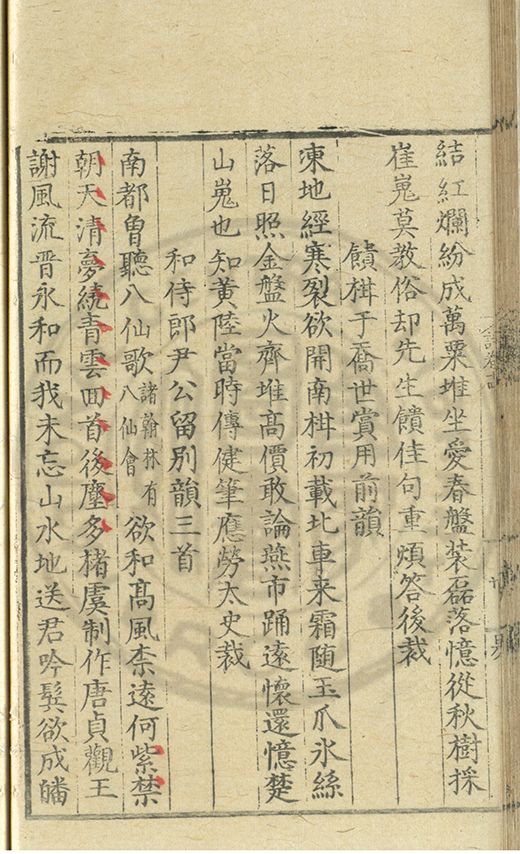 結紅斕紛成萬粟堆坐愛春盤裝磊落憶從秋樹採
崔嵬莫教俗却先生饋佳句重煩答後裁
饋柑于喬世賞用前韻
凍地經寒裂欲開南柑初載北車来霜随玉爪氷絲
落日照金盤火齊堆髙價敢論燕市踊遠懷還憶楚
山嵬也知黄陸當時傳健筆應勞太史裁
和侍郎尹公留别韻三首
南都曽聽八仙歌諸翰林有八仙會欲和髙風柰遠何紫禁
朝天清夢繞青雲回首後塵多楮虞制作唐貞觀王
謝風流晋永和而我未忘山水地送君吟鬂欲成皤